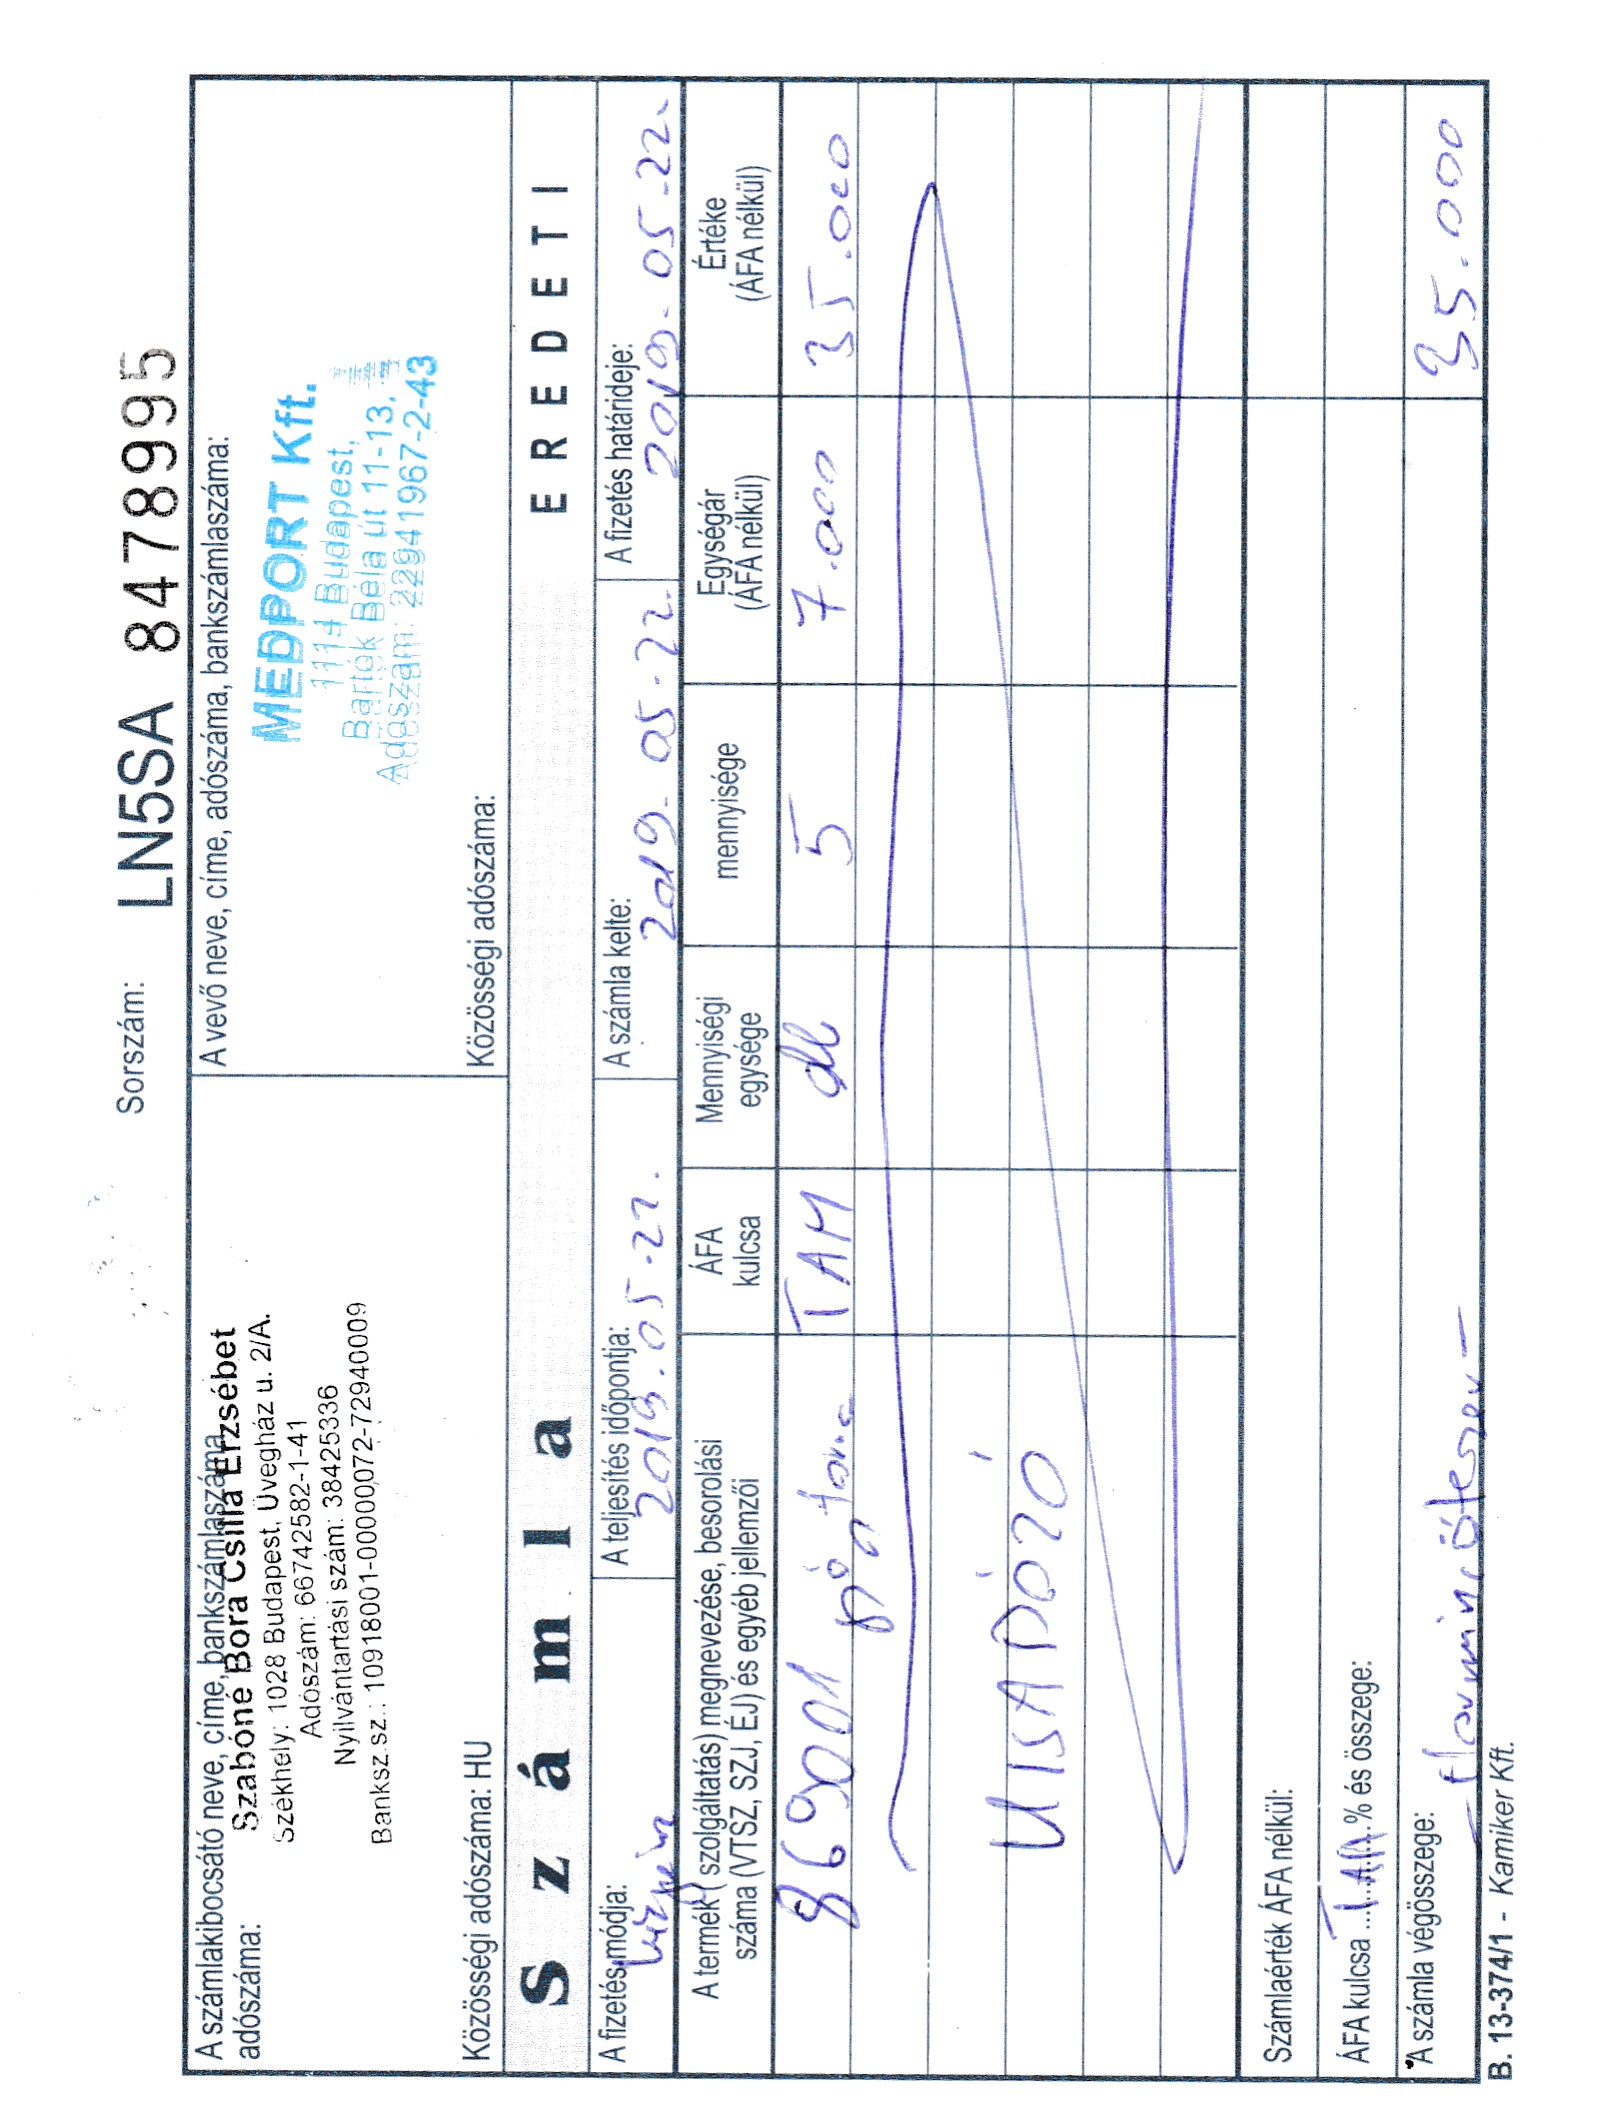 Sorszám: LN5SA 8478995
A számlakibocsátó neve, címe, bankszámlaszáma,
adószáma:
Szabóné Bora Csilla Erzsébet
Székhely: 1028 Budapest, Üvegház u. 2/A.
Adószám: 66742582-1-41
Nyilvántartási szám: 38425336
Banksz.sz.: 10918001-00000072-72940009
Közösségi adószáma: HU
A vevő neve, címe, adószáma, bankszámlaszáma:
MEDPORT Kft.
1114 Budapest,
Bartók Béla út 11-13.
Adószám: 22941967-2-43
Közösségi adószáma:
Számla
EREDETI
A fizetés módja:
A teljesítés időpontja:
2019.05.22.
A számla kelte:
2019.05.22.
A fizetés határideje:
2019.05.22.
A termék (szolgáltatás) megnevezése, besorolási
száma (VTSZ, SZJ, ÉJ) és egyéb jellemzői
ÁFA
kulcsa
Mennyiségi
egysége
mennyisége
Egységár
(ÁFA nélkül)
Értéke
(ÁFA nélkül)
869001 TAM db 5 7.000 35.000
KISADÓZÓ
Számlaérték ÁFA nélkül:
ÁFA kulcsa TAM % és összege:
A számla végösszege: 35.000
Harmincötezer
B. 13-374/1 - Kamiker Kft.